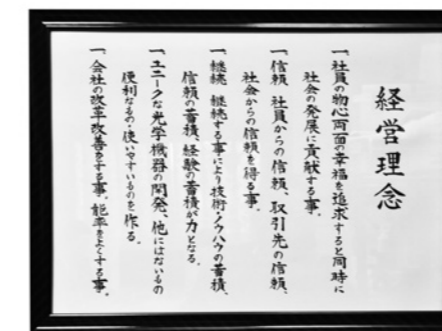 経営理念
一、社員の物心両面の幸福を追求すると同時に
社会の発展に貢献する事。
一、信頼 社員からの信頼、取引先の信頼、
社会からの信頼を得る事。
一、継続 継続する事により技術・ノウハウの蓄積、
信頼の蓄積、経験の蓄積が力となる。
一、ユニークな光学機器の開発、他にはないもの
便利なもの使いやすいものを作る。
一、会社の改革改善をする事。能率をよくする事。